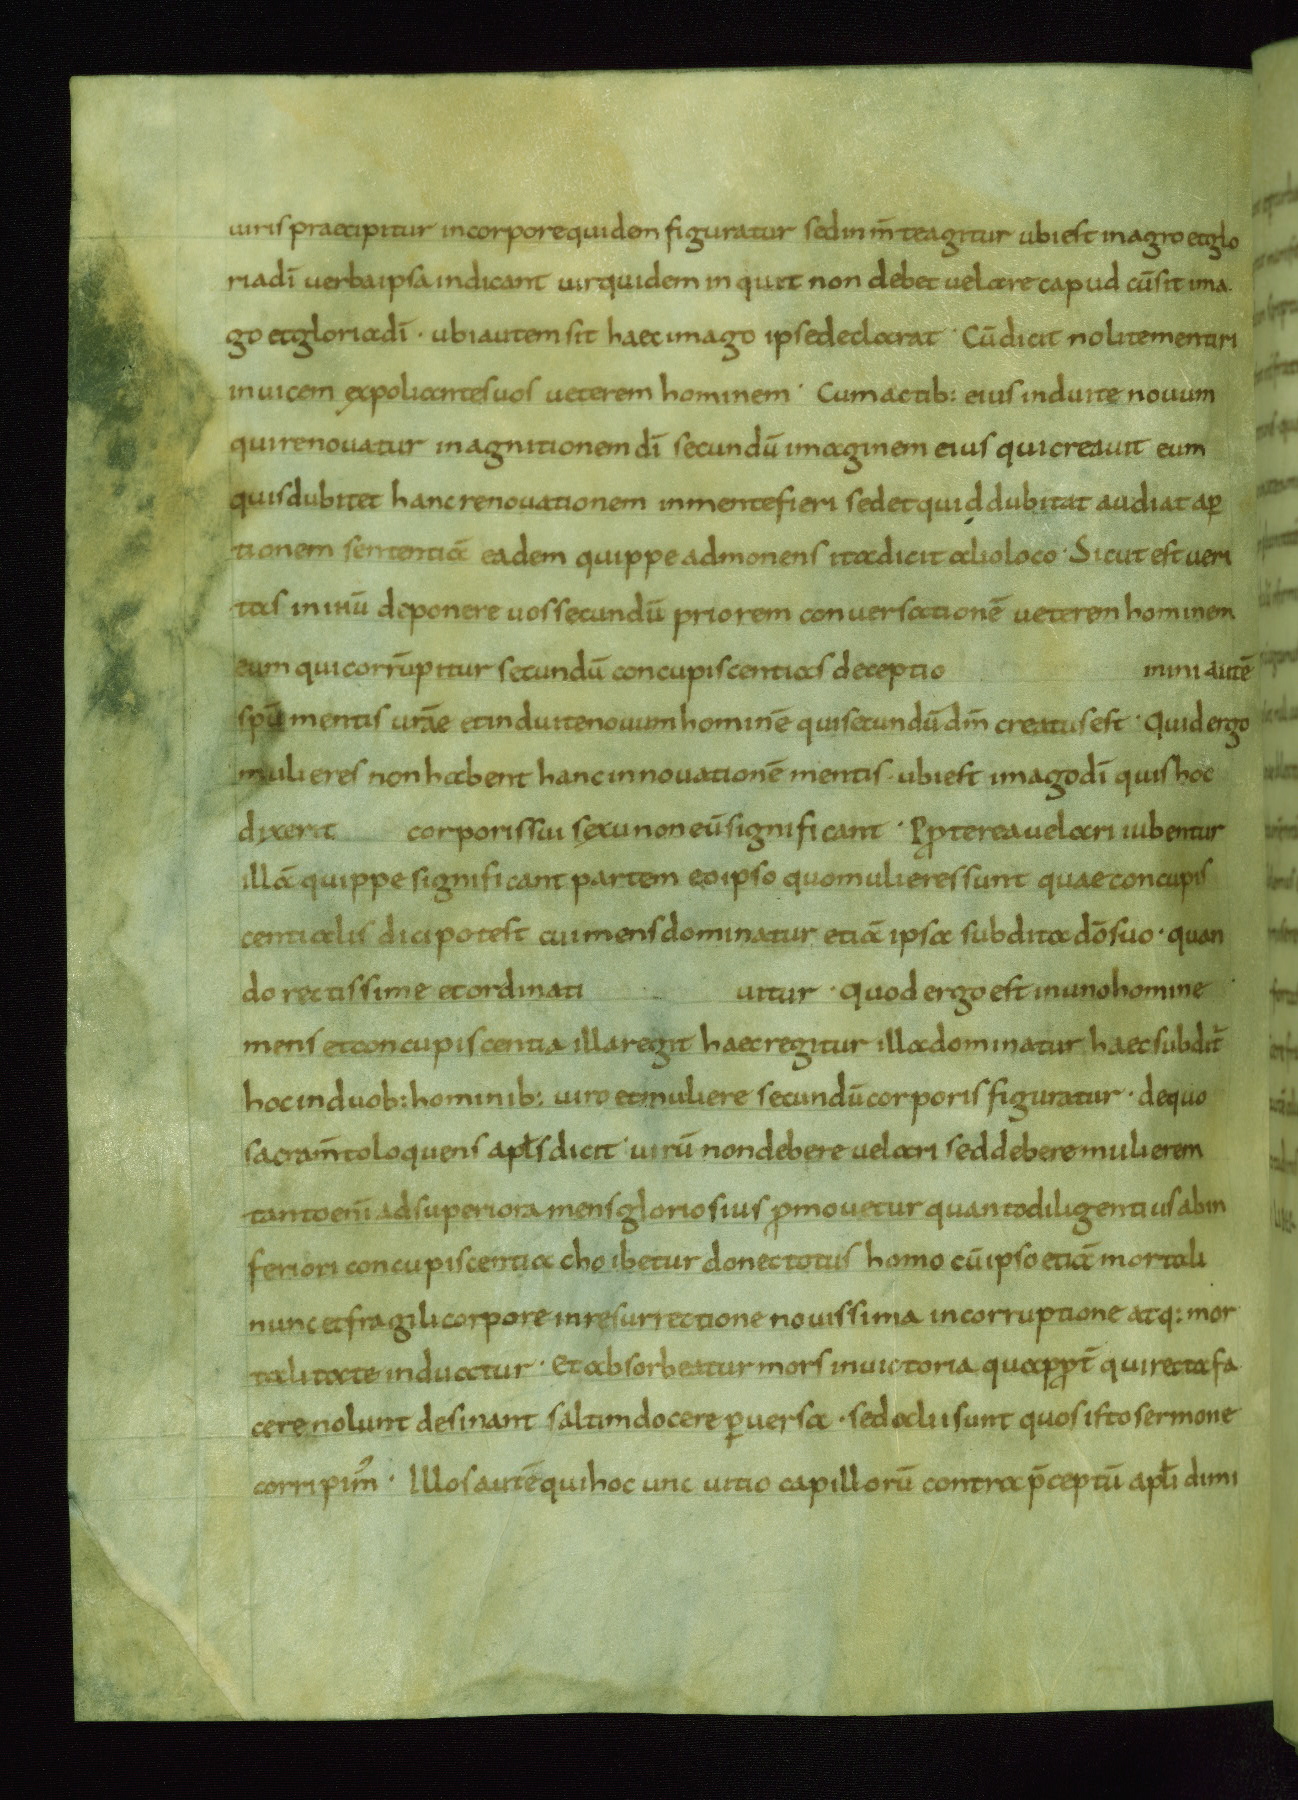 uiris praecipitur in corpore quidem figuratur sed in m̄te agitur ubi est imago et glo
ria dī verba ipsa indicant uir quidem inquit non debet uelare capud cū sit ima
go et gloria dī · ubi autem sit haec imago ipse declarat · Cū dicit nolite mentiri
inuicem expoliantes uos ueterem hominem · Cum actib: eius induite nouum
qui renouatur in agnitionem dī secundū imaginem eius qui creauit eum
quis dubitet hanc renouationem in mente fieri sed et quid dubitat audiat ap̱
tionem sententiā eadem quippe admonens ita dicit alio loco · Sicut est ueri
tas in ihū deponere uos secundū priorem conuersationē ueterem hominem
eum qui corrūpitur secundū concupiscentias deceptio mini autē
spū mentis urāe et induite nouum hominē qui secundū dm̄ creatus est · Quid ergo
mulieres non habent hanc innouationē mentis · ubi est imago dī quis hoc
dixerit corporis sui sexu non eū significant · Ꝓpterea uelari iubentur
illā quippe significant partem eo ipso quo mulieres sunt quae concupis
centialis dici potest cui mens dominatur etiā ipsa subdita dō suo · quan
do rectissime et ordinati uitur · Quod ergo est in uno homine
mens et concupiscentia illa regit haec regitur illa dominatur haec subdit̄
hoc in duob: hominib: uiro et muliere secundū corporis figuratur · de quo
sacram̄to loquens apl̄s dicit · uirū non debere uelari sed debere mulierem
tanto eni̅ ad superiora mens gloriosius ꝓmouetur quanto diligentius ab in
feriori concupiscentia choibetur donec totus homo cū ipso etiā mortali
nunc et fragili corpore in resurrectione nouissima incorruptione atq: mor
talitate induatur · Et absorbeatur mors in uictoria quaꝓpt̄ qui recta fa
cere nolunt desinant saltim docere ꝑuersa · sed alii sunt quos isto sermone
corripim᷒ · Illos autē qui hoc uno uitio capillorū contra p̄ceptū apl̄i dimi